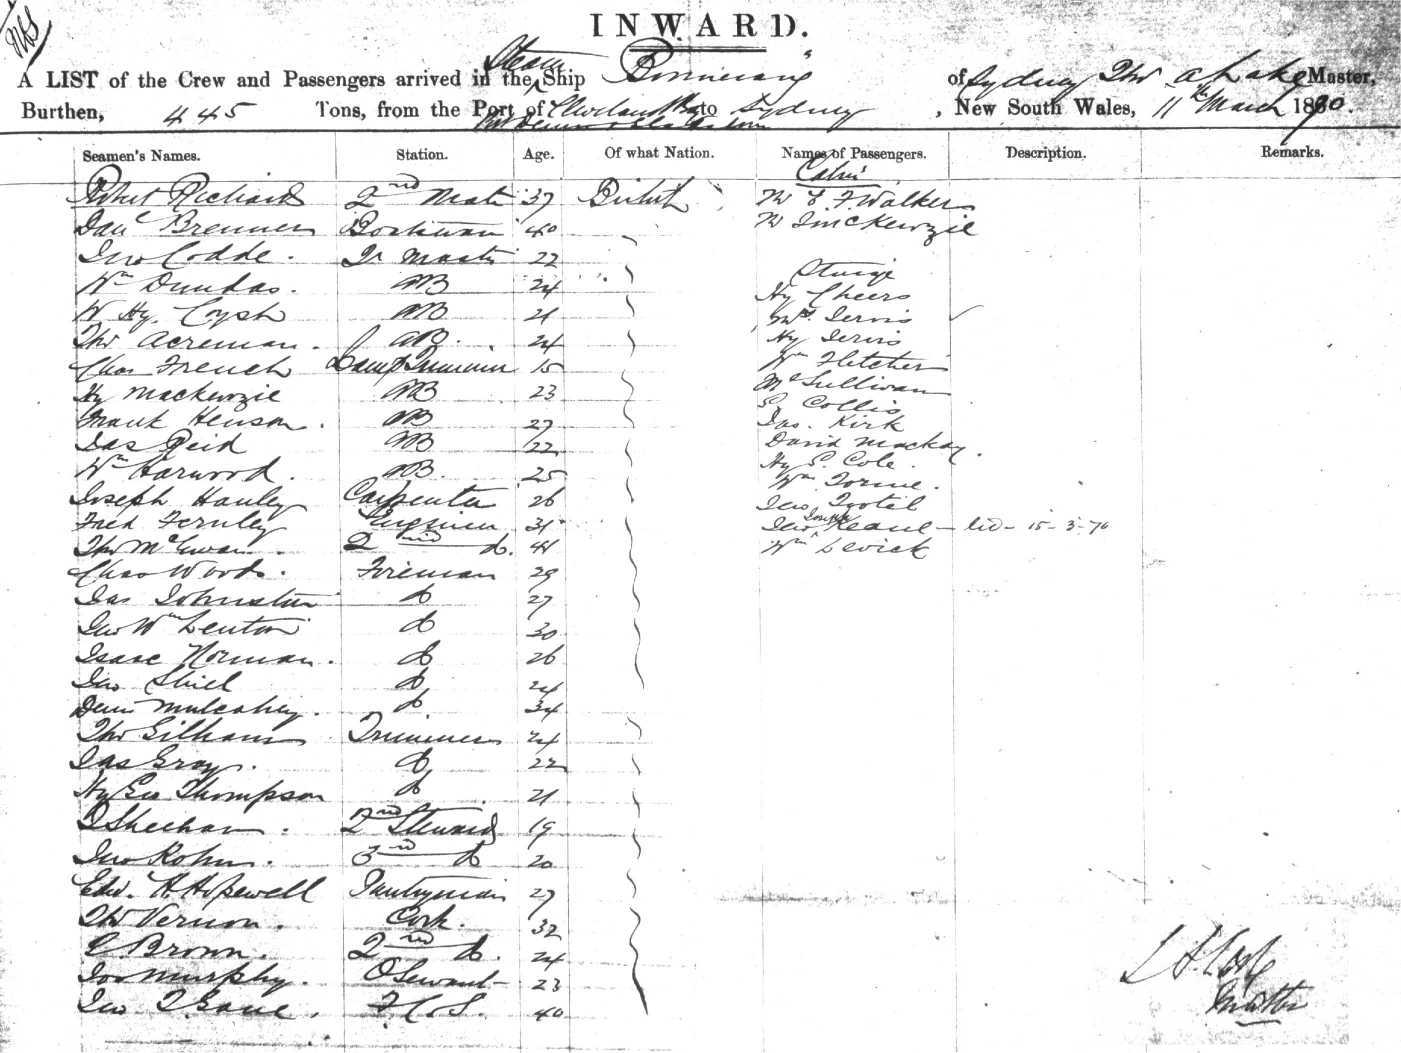 INWARD.
A LIST of the Crew and Passengers arrived in the Steam Ship "Boomerang" of Sydney Thos A Lake Master,
Burthen, 445 Tons, from the Port of Cleveland Bay to Sydney, New South Wales, 11th March 1870.
Seamen's Names. Station. Age. Of what Nation. Names of Passengers. Description. Remarks.
Cabin
Robert Richards 2nd Mate 37 British Mr E. F. Walker
Danl Brennen Boatswain 40 Mr J McKenzie
Jno Codde. Lr Master 22
Wm Dundas. AB 24 Steerage
W Hy. Coysh AB 21 Hy Cheers
Thos Acreman. AB. 24 Mrs Jervis
Chas French Lamp Trimmer 15 Hy Jervis
Hy Mackenzie AB 23 Wm Fletcher
Frank Henson. AB 27 McSullivan
Jas Reid AB 22 S. Collis
Wm Harwood. AB. 25 Jas. Kirk
Joseph Hanley Carpenter 26 David Mackay.
Fred Fernley Engineer 31 Hy S. Cole.
Thos McEwan. 2nd do. 41 Wm Torme.
Chas Woods. Fireman 29 Jno Tootal
Jas Johnston do 27 Jno Joseph Keane - 15-3-70
Jno Wm Lenton do 30 Wm Levick
Isaac Norman. do 26
Jno Shiel do 24
Denis Mulcahey. do 34
Thos Gilham Trimmer 24
Jas Gray. do 22
Hy Geo Thompson do 21
J Sheehan. 2nd Steward 19
Jno Kohn. 3rd do 20
Edw. H. Hopewell Pantryman 27
Thos Vernon. Cook. 32
C Brown. 2nd do. 24
Jos Murphy. O Servant 23
Jno T Gane. F.C.S. 40
Master